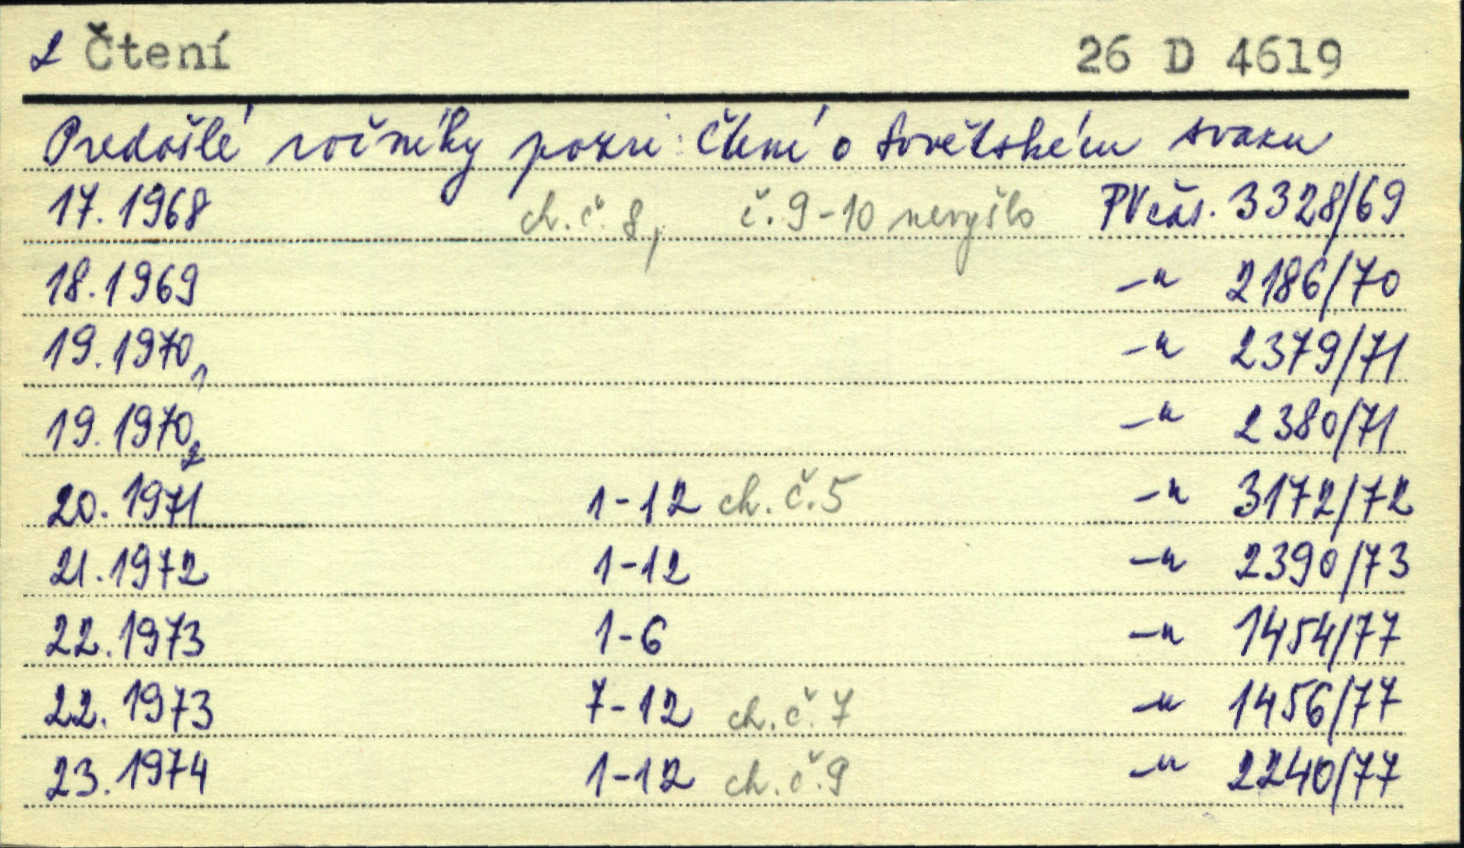 2 Čtení 26 D 4619
Predošlé ročníky pozri: Čtení o Sovětském svazu
17. 1968 ch. č. 8, č. 9-10 nevyšlo PV čas. 3328/69
18. 1969 -"- 2186/70
19. 1970,1 -"- 2379/71
19. 1970,2 -"- 2380/71
20. 1971 1-12 ch. č. 5 -"- 3172/72
21. 1972 1-12 -"- 2390/73
22. 1973 1-6 -"- 1454/77
22. 1973 7-12 ch. č. 7 -"- 1456/77
23. 1974 1-12 ch. č. 9 -"- 2240/77